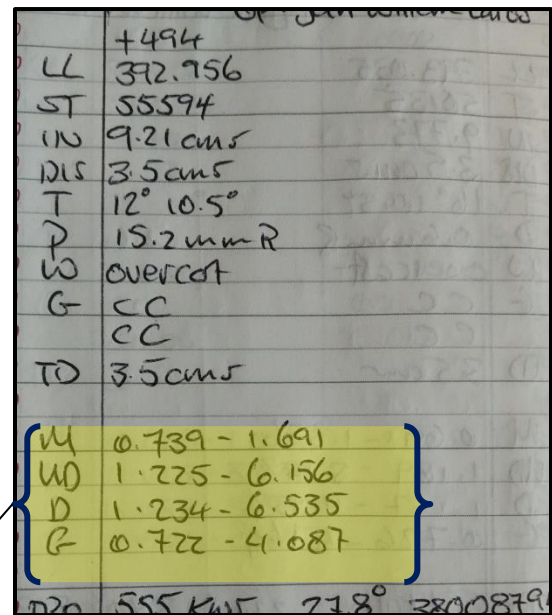 +494
LL 392.956
ST 55594
IN 9.21 cms
DIS 3.5cms
T 12° 10.5°
P 15.2mmR
W overcast
G CC
CC
TD 3.5cms
M 0.739 - 1.691
UD 1.225 - 6.156
D 1.234 - 6.535
G 0.722 - 4.087
555 Kws 27.8° 3800879